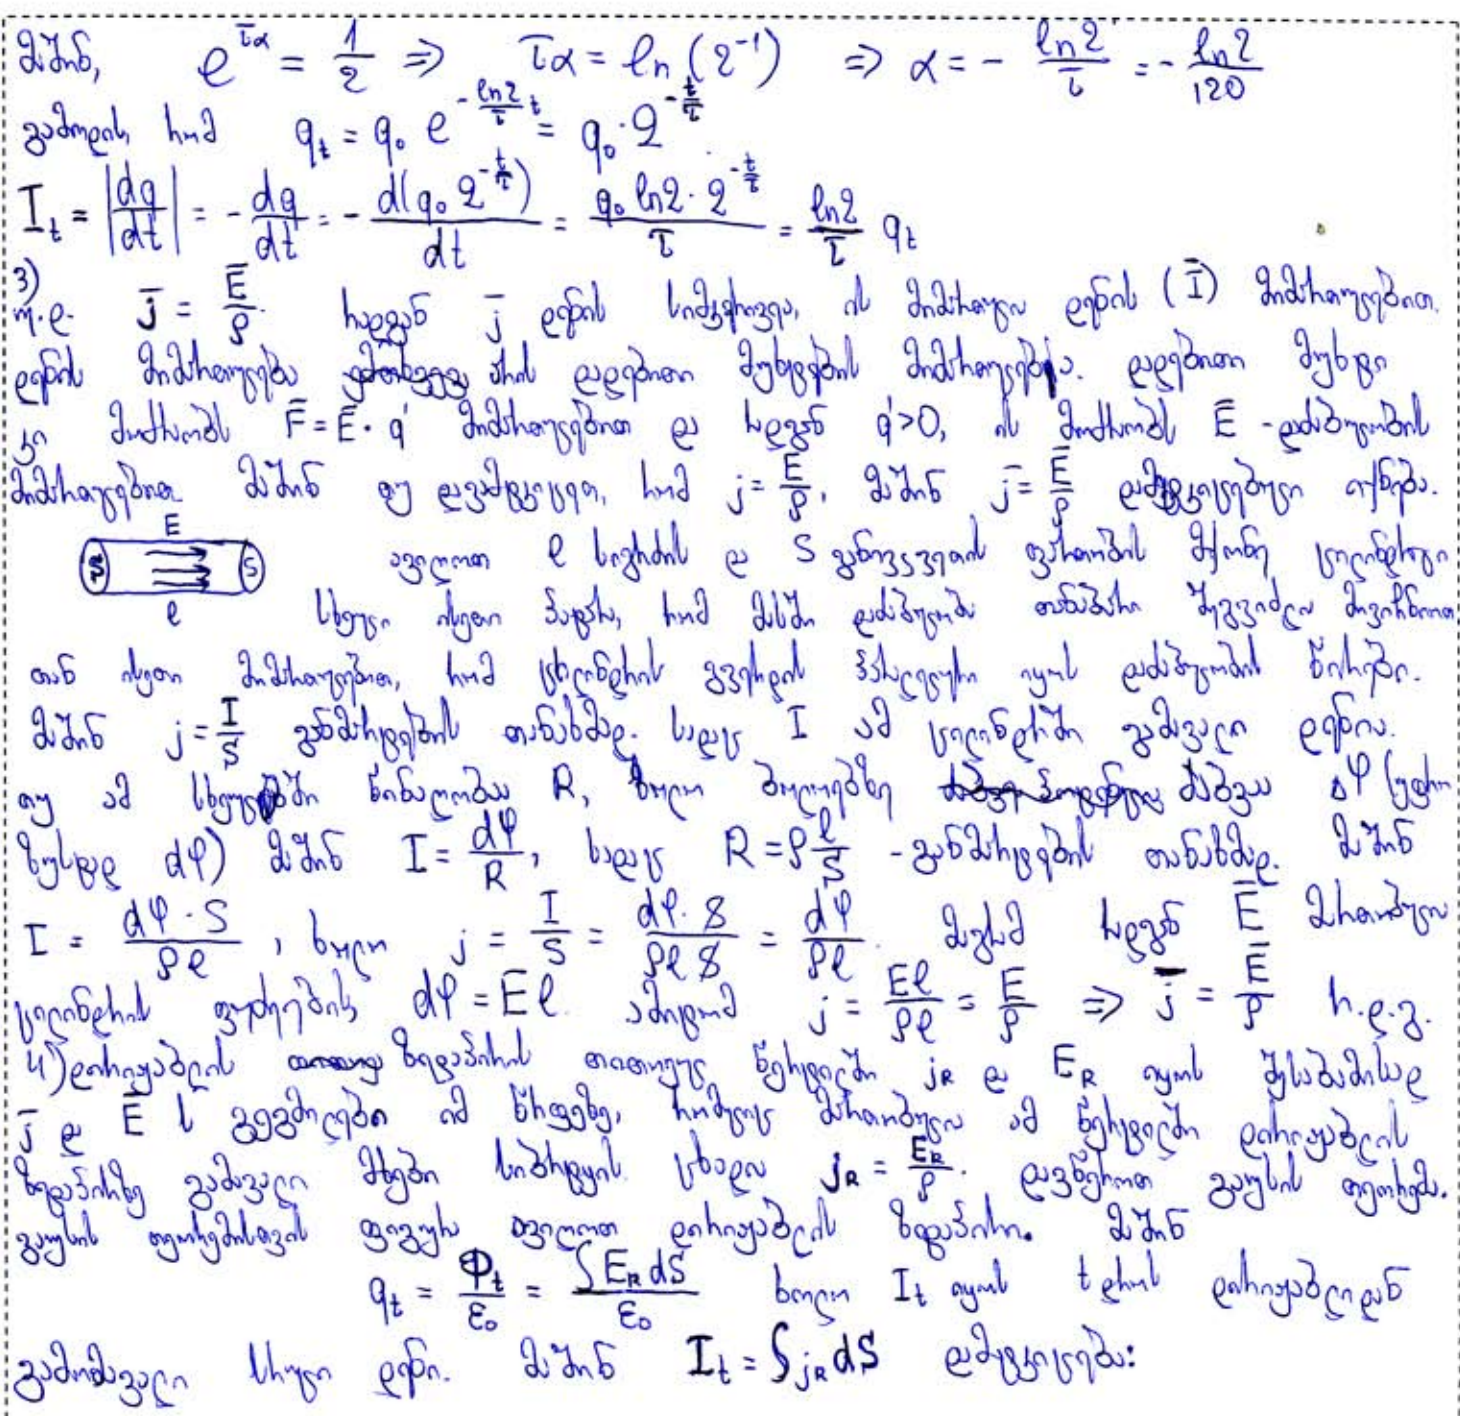 მაშინ, e^{τα} = 1/2 ⇒ τα = ln(2^{-1}) ⇒ α = - ln2/τ = - ln2/120
გამოდის, რომ q_t = q_0 e^{-(ln2/τ)t} = q_0 · 2^{-t/τ}
I_t = |dq/dt| = - dq/dt = - d(q_0 2^{-t/τ})/dt = q_0 ln2 · 2^{-t/τ}/τ = ln2/τ q_t
3)
ო.დ. j̅ = E̅/ρ. რადგან j̅ დენის სიმკვრივეა, ის მიმართულია დენის (I̅) მიმართულებით.
დენის მიმართულება არის დადებითი მუხტების მიმართულება. დადებითი მუხტი
კი მოძრაობს F̅ = E̅ · q' მიმართულებით და რადგან q'>0, ის მოძრაობს E̅ - დაძაბულობის
მიმართულებით. მაშინ თუ დავამტკიცეთ, რომ j = E/ρ, მაშინ j̅ = E̅/ρ დამტკიცებული იქნება.
E
S S ავიღოთ l სიგრძის და S განივკვეთის ფართობის მქონე ცილინდრული
l სხეული ისეთი პატარა, რომ მასში დაძაბულობა თანაბარი შეგვიძლია მივიჩნიოთ
თან ისეთი მიმართულებით, რომ ცილინდრის გვერდის პარალელური იყოს დაძაბულობის წირები.
მაშინ j = I/S განმარტების თანახმად. სადაც I ამ ცილინდრში გამავალი დენია.
თუ ამ სხეულში წინაღობაა R, ხოლო ბოლოებზე ძაბვაა Δφ (უფრო
ზუსტად dφ) მაშინ I = dφ/R, სადაც R = ρ l/S - განმარტების თანახმად. მაშინ
I = dφ · S/ρl, ხოლო j = I/S = dφ · S/ρl S = dφ/ρl. მაგრამ რადგან E̅ მართობულია
ცილინდრის ფუძეების, dφ = El. ამიტომ j = El/ρl = E/ρ ⇒ j̅ = E̅/ρ რ.დ.გ.
4) დირიჟაბლის ზედაპირის თითოეულ წერტილში j_R და E_R იყოს შესაბამისად
j̅ და E̅ ს გეგმილები იმ წრფეზე, რომელიც მართობულია ამ წერტილში დირიჟაბლის
ზედაპირზე გამავალი მხები სიბრტყის. ცხადია j_R = E_R/ρ. დავწეროთ გაუსის თეორემა.
გაუსის თეორემისთვის ფიგურა ავიღოთ დირიჟაბლის ზედაპირი. მაშინ
q_t = Φ_t/ε_0 = ∫E_R dS/ε_0 ხოლო I_t იყოს t დროს დირიჟაბლიდან
გამომავალი სრული დენი. მაშინ I_t = ∫j_R dS დამტკიცება: